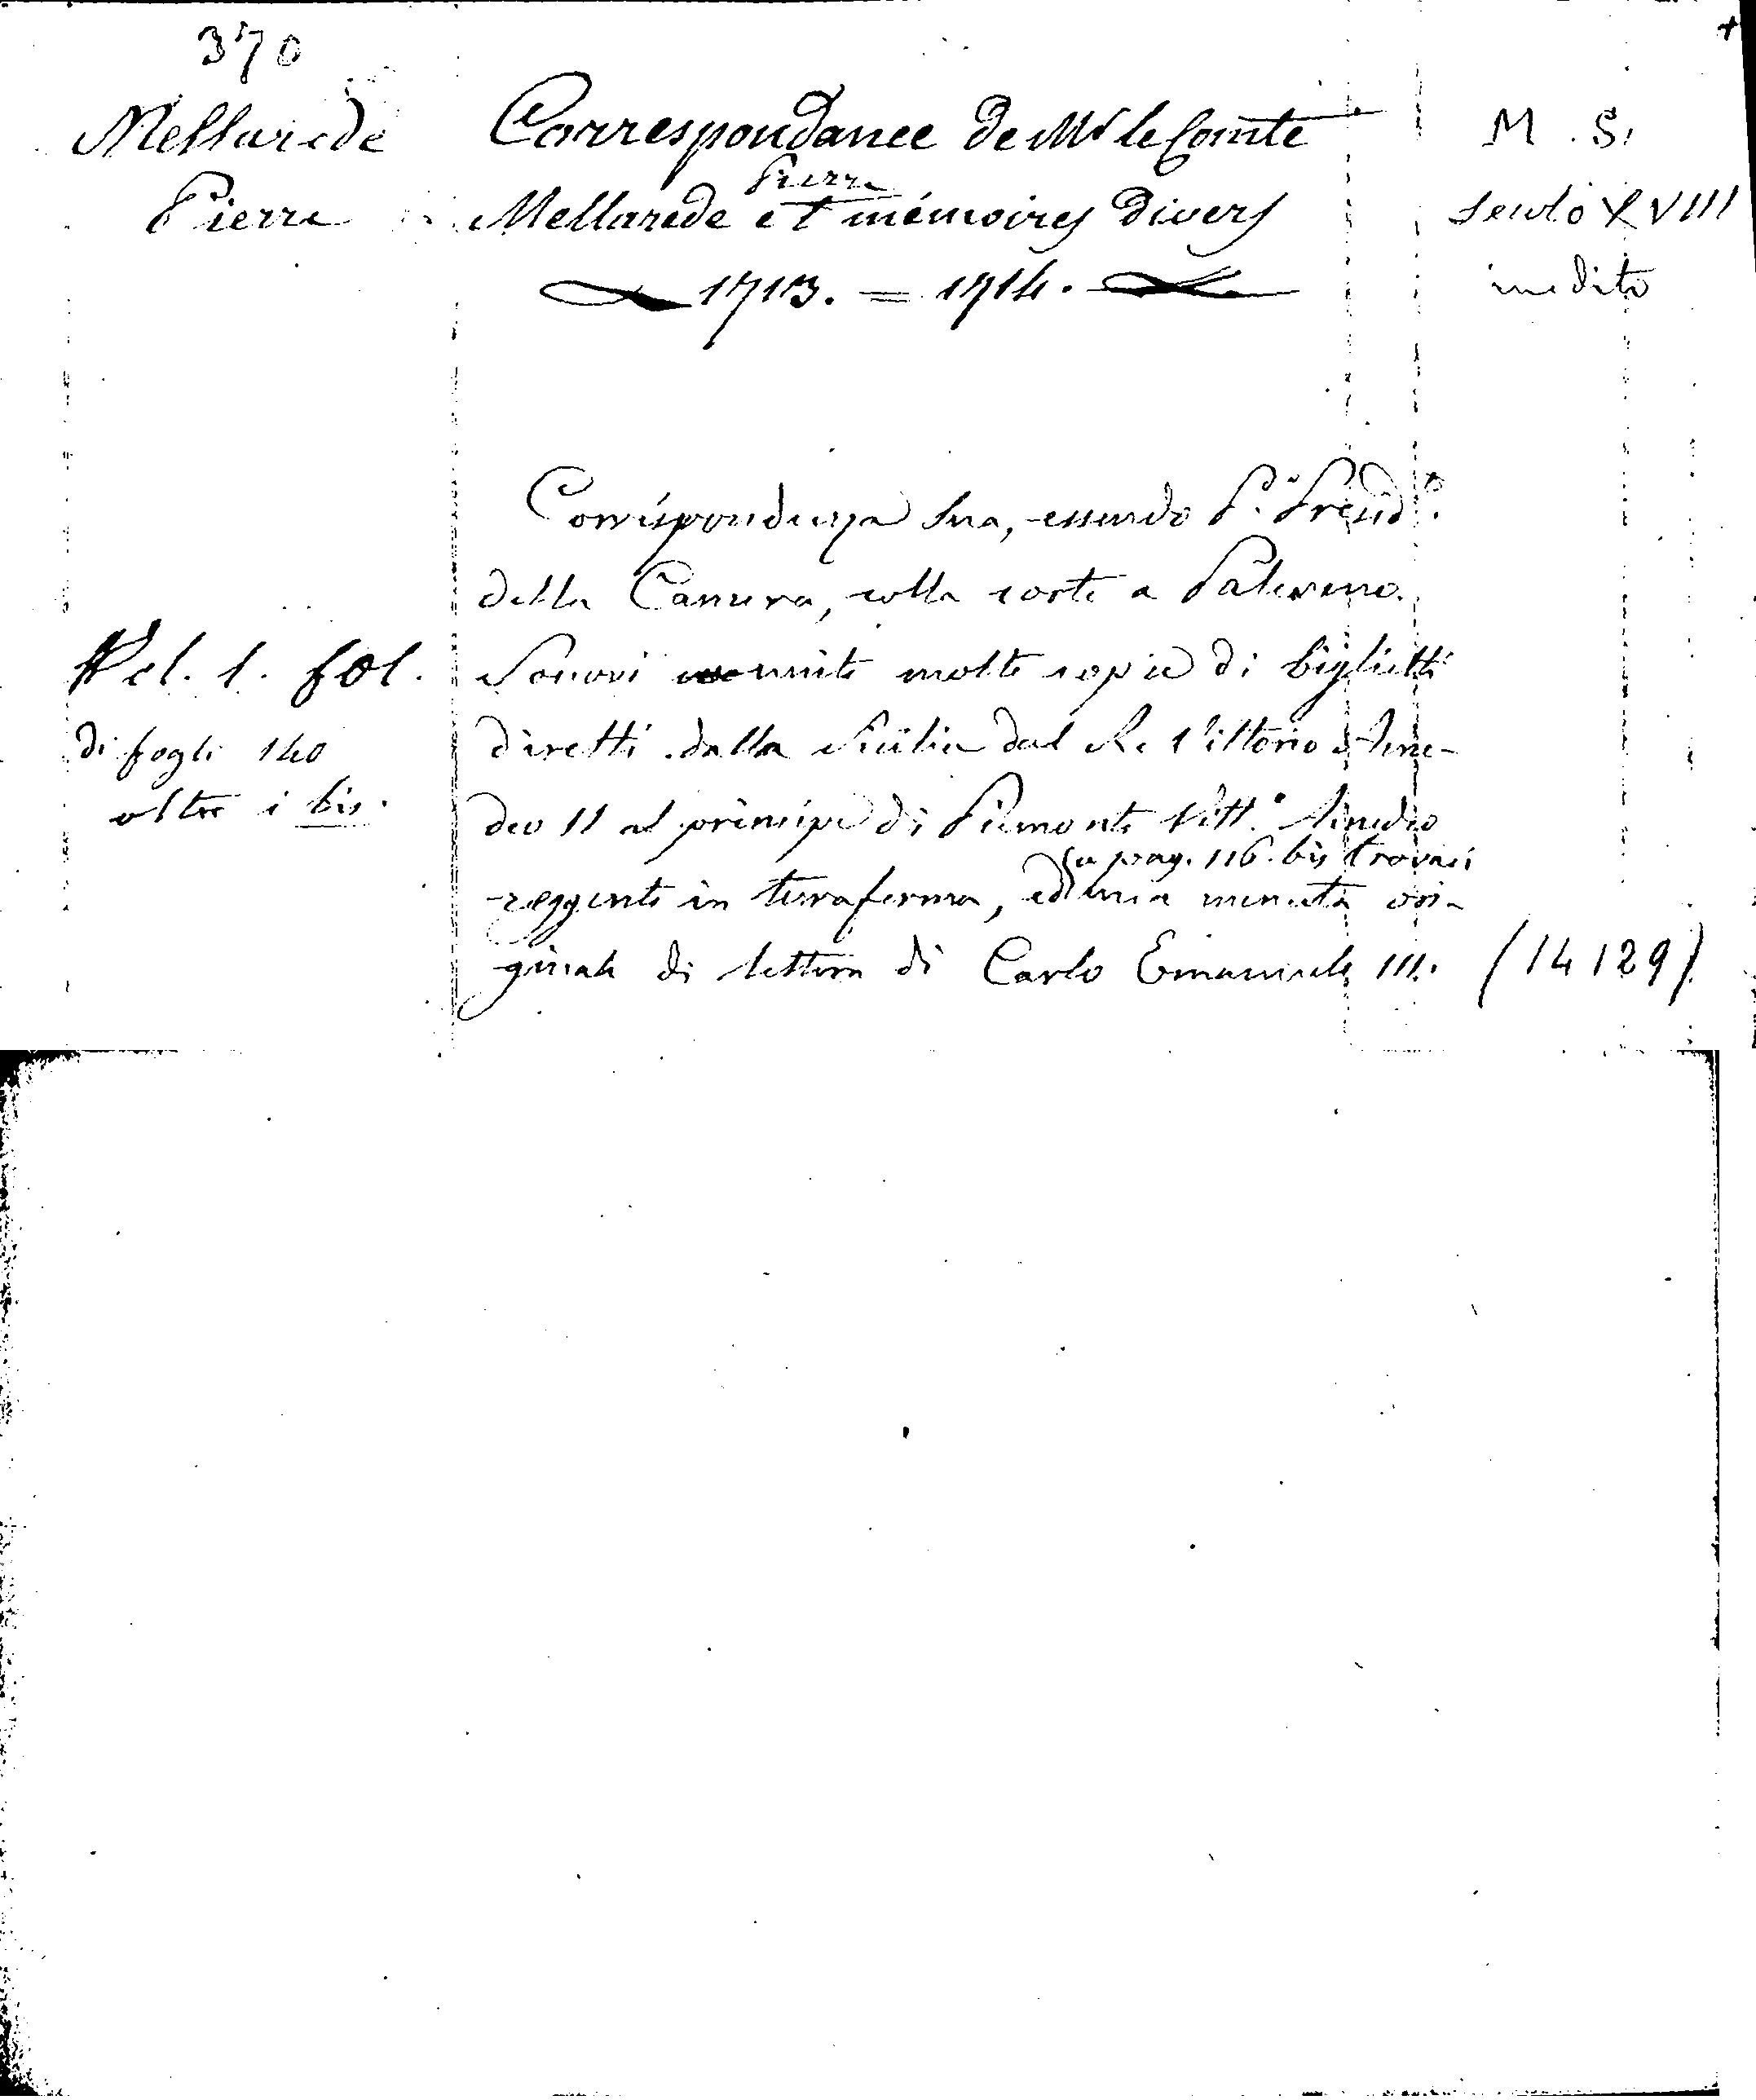 370
Mellarede
Pierre
Correspondance de Mr le Comte
Pierre
Mellarede et mémoires divers
1713. = 1714.
M. S.
secolo XVIII
inedito
Corrispondenza sua, essendo P.º Presid.te
della Camera, colla corte a Palermo.
Vol. 1. fol.
di fogli 140
oltre i bis.
Sonovi unite molte copie di biglietti
diretti dalla Sicilia dal Re Vittorio Ame-
deo II al principe di Piemonte Vitt.º Amedeo
(a pag. 116. bis trovasi
reggente in terraferma, ed una minuta ori-
ginale di lettera di Carlo Emanuele III.
(14129)